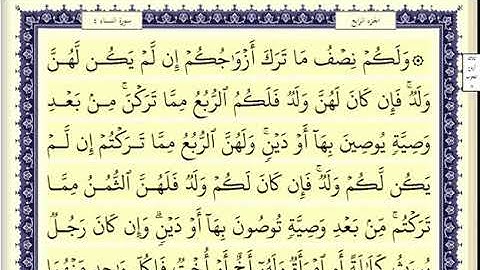 الجزء الرابع
سورة النساء ٤
۞ وَلَكُمۡ نِصۡفُ مَا تَرَكَ أَزۡوَٰجُكُمۡ إِن لَّمۡ يَكُن لَّهُنَّ
وَلَدٞۚ فَإِن كَانَ لَهُنَّ وَلَدٞ فَلَكُمُ ٱلرُّبُعُ مِمَّا تَرَكۡنَۚ مِنۢ بَعۡدِ
وَصِيَّةٖ يُوصِينَ بِهَآ أَوۡ دَيۡنٖۚ وَلَهُنَّ ٱلرُّبُعُ مِمَّا تَرَكۡتُمۡ إِن لَّمۡ
يَكُن لَّكُمۡ وَلَدٞۚ فَإِن كَانَ لَكُمۡ وَلَدٞ فَلَهُنَّ ٱلثُّمُنُ مِمَّا
تَرَكۡتُمۚ مِّنۢ بَعۡدِ وَصِيَّةٖ تُوصُونَ بِهَآ أَوۡ دَيۡنٖۗ وَإِن كَانَ رَجُلٞ
يُورَثُ كَلَٰلَةً أَوِ ٱمۡرَأَةٞ وَلَهُۥٓ أَخٌ أَوۡ أُخۡتٞ فَلِكُلِّ وَٰحِدٖ مِّنۡهُمَا